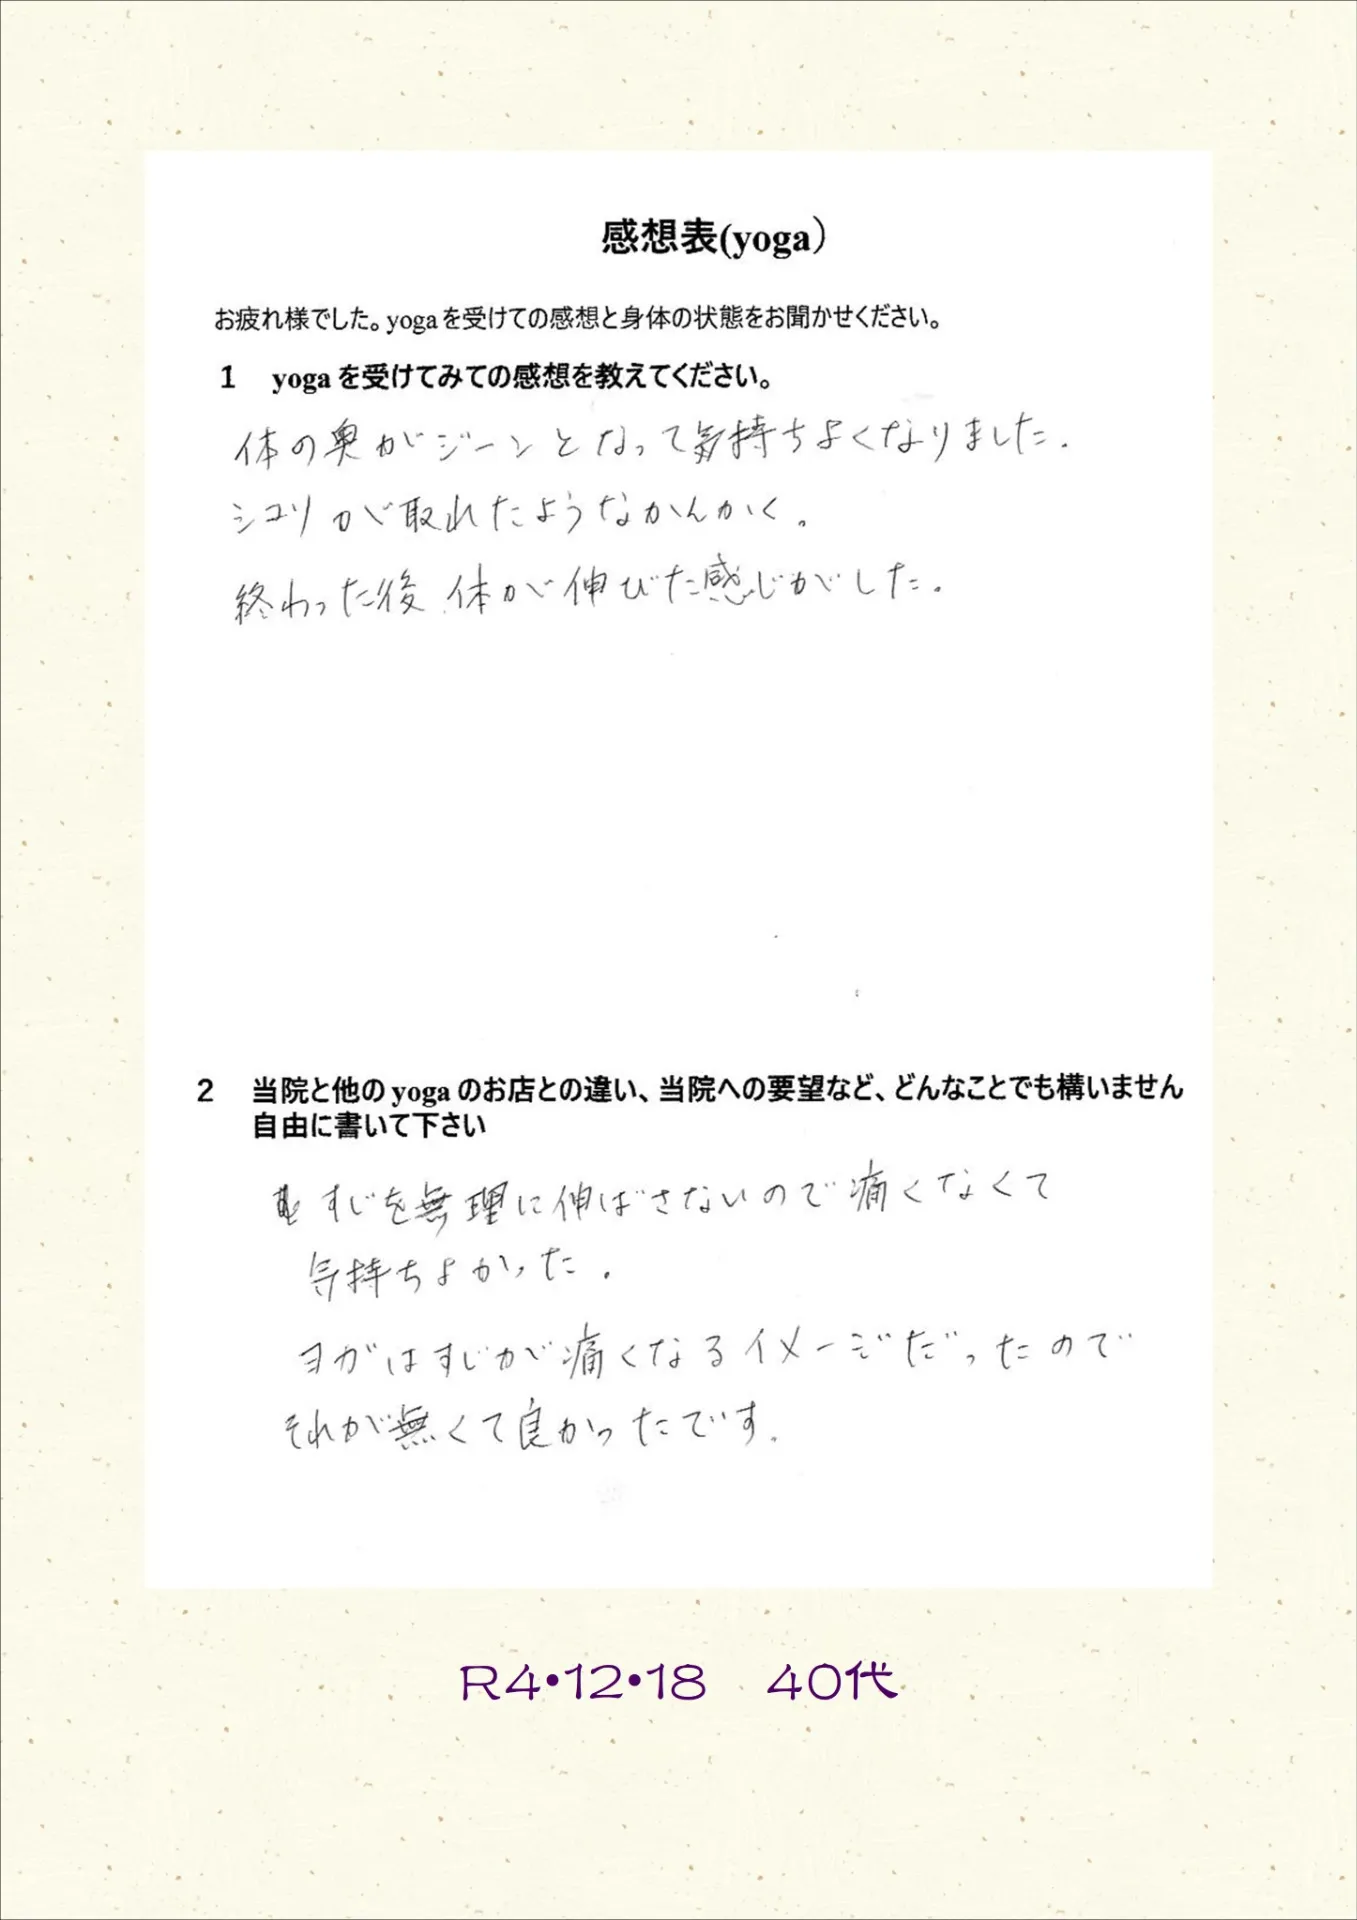 感想表(yoga）
お疲れ様でした。yogaを受けての感想と身体の状態をお聞かせください。
１　yogaを受けてみての感想を教えてください。
体の奥がジーンとなって気持ちよくなりました.
シコリが取れたようなかんかく。
終わった後、体が伸びた感じがした.
２　当院と他のyogaのお店との違い、当院への要望など、どんなことでも構いません
自由に書いて下さい
すじを無理に伸ばさないので痛くなくて
気持ちよかった.
ヨガはすじが痛くなるイメージだったので
それが無くて良かったです.
R4•12•18　40代